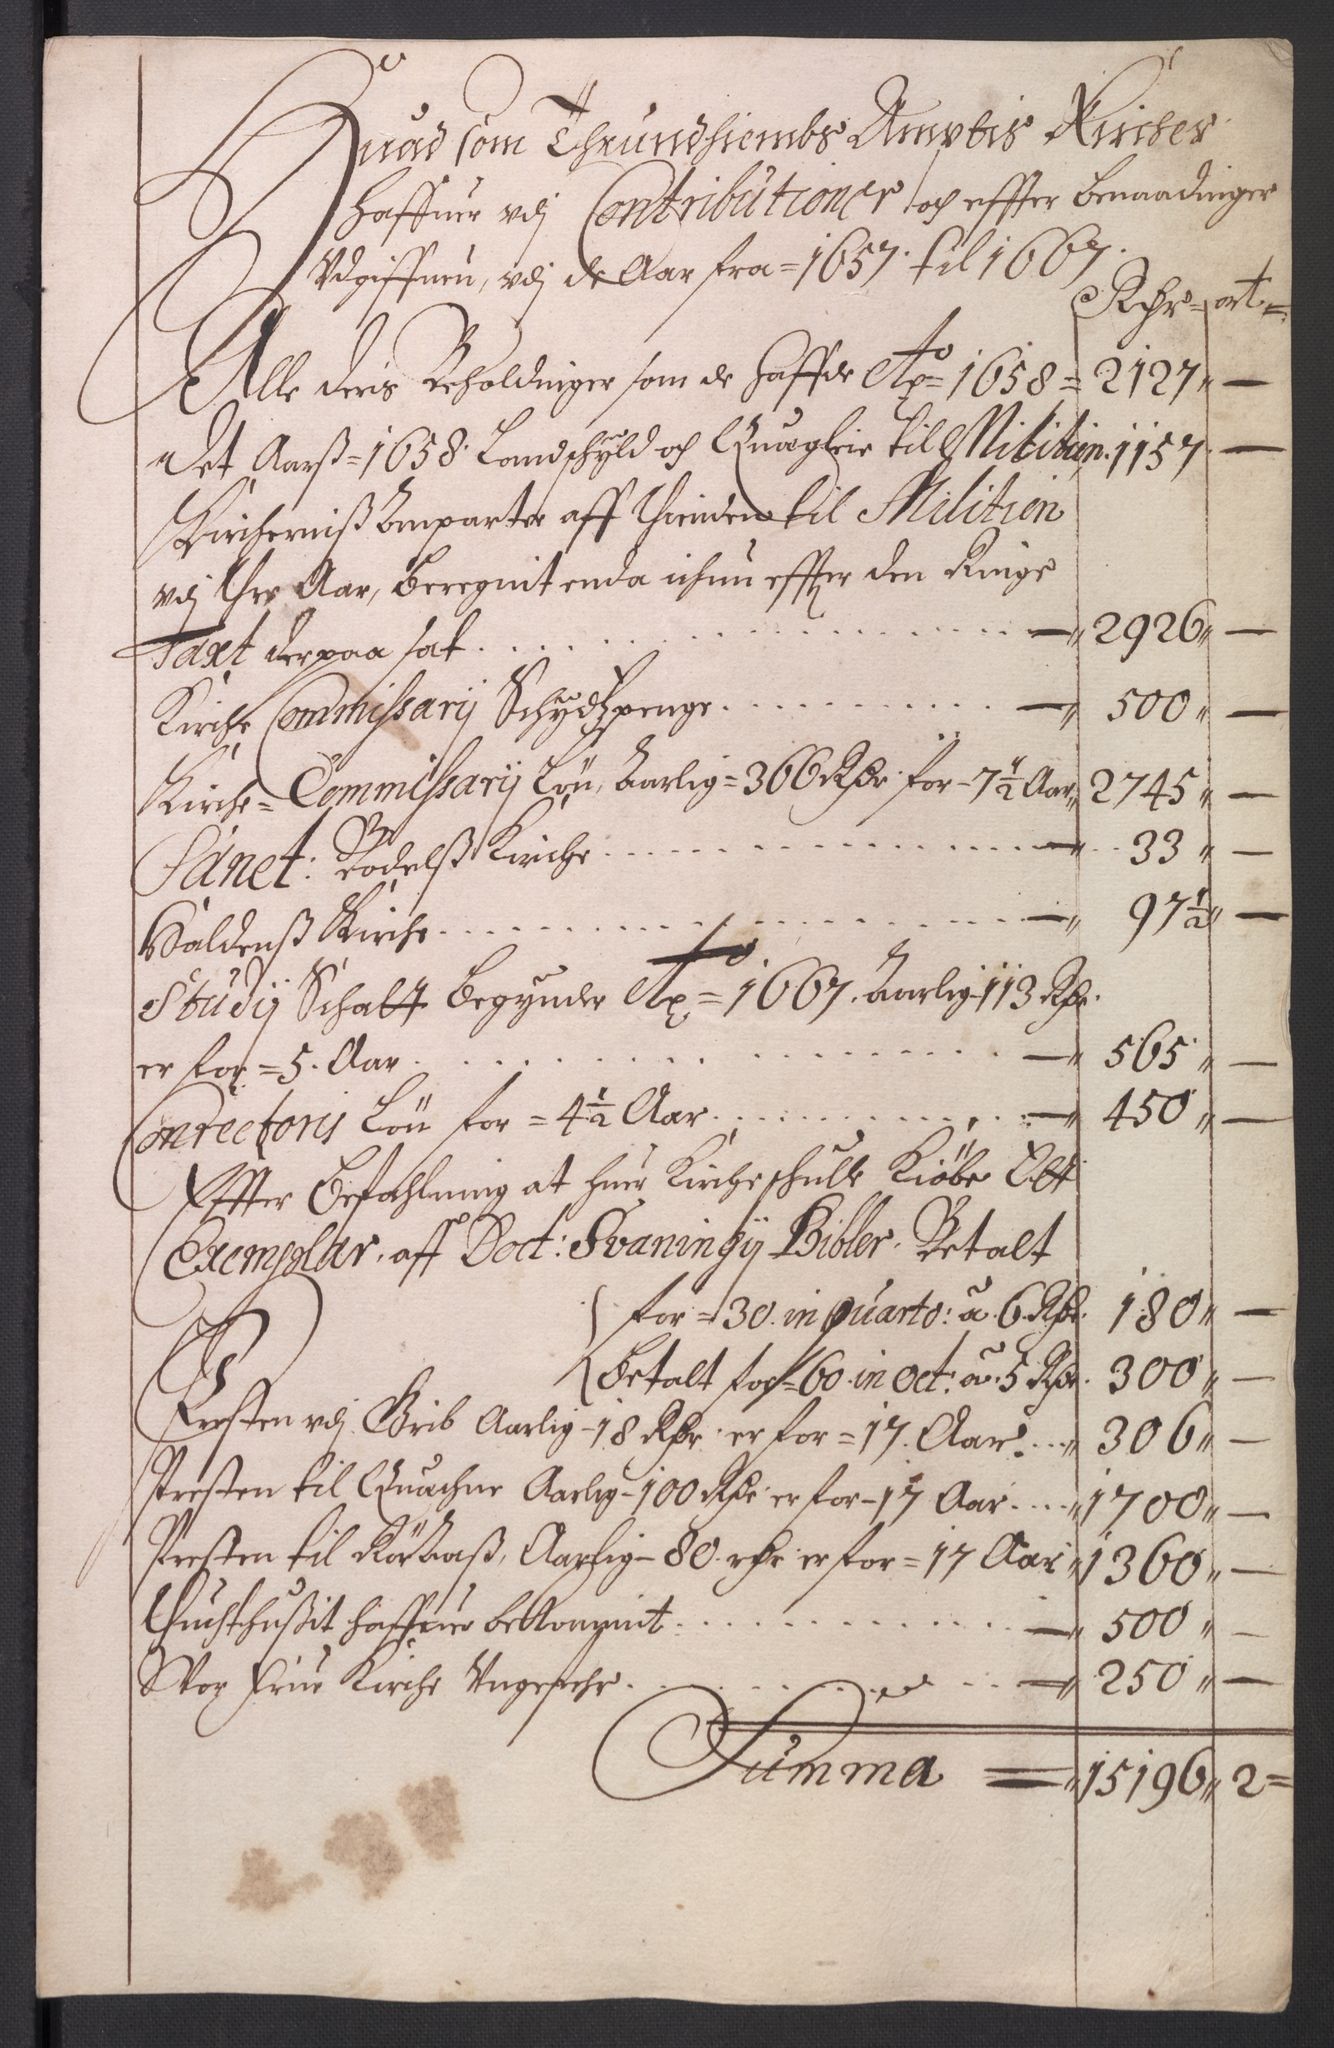 Huad som Thrundhiembs Ambtis Kircher
haffuer vdj Contributioner och effter benaadinger
Vdgiffuen, vdj de Aar fra = 1657. til 1667.
Rdr = ort =
Alle deris Beholdninger som de haffde Ao = 1658 = 2127 „ —
det Aarß = 1658. Landschyld och Quægleie til Militien. 1157 —
Kircherniß Anparter aff Thienden til Militien
vdj Aar, beregnit enda ichun effter den Ringe
Taxt derpaa sat . . . . . — „ 2926 „ —
Kirche Commissarij Schydspenge . . . . . — „ 500 „ —
Kirche = Commissarij Løn, Aarlig = 366 Rdr for – 7 1/2 Aar „ 2745 „ —
Sanct: Bodelß Kirche . . . . . — 33 „ —
Haldenß Kirche . . . . . — „ 97 1/2 „ —
Studij Schatt begynder Ao = 1667. Aarlig – 113 Rdr.
er for = 5. Aar . . . . . — „ 565 „ —
Conrectoris Løn for = 4 1/2 Aar . . . . . — „ 450 „ —
Effter Befahlning at huer Kirche schulle Kiøbe Ett
Exemplar. aff Doct: Svaningij Bibler. Betalt
for = 30. in quarto: a. 6. Rdr. 180 „ —
Betalt for = 60. in Oct: a. 5 Rdr. 300 „ —
Presten vdj Grib Aarlig – 18 Rdr. er for = 17. Aar . . . „ 306 „ —
Presten til Quachne Aarlig – 100 Rdr er for – 17 Aar . . . . „ 1700 „ —
Presten til Röraaß, Aarlig – 80. rdr er for = 17 Aar „ 1360 „ —
Thuchthußit haffuer bekommit . . . . . — „ 500 „ —
Wor Frue Kirche Ungefehr . . . . . — „ 250 „ —
Summa — „ 15196 „ 2 =